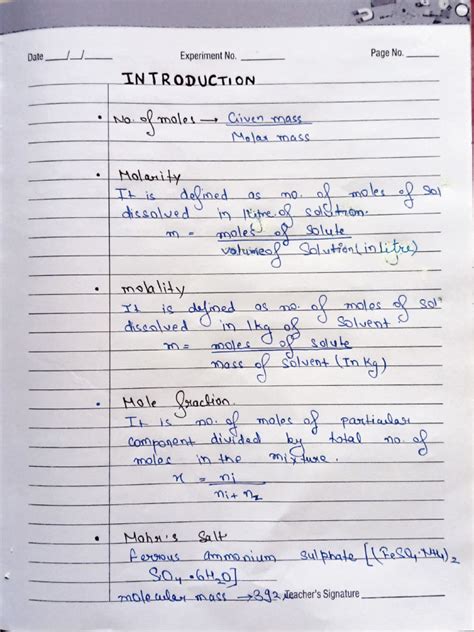 Date __/__/__ Experiment No. ______ Page No. ______
INTRODUCTION
• No. of moles → Given mass
Molar mass
• Molarity
It is defined as no. of moles of Sol
dissolved in 1 litre of solution.
m = moles of solute
volume of Solution (in litre)
• molality
It is defined as no. of moles of sol
dissolved in 1kg of Solvent
m = moles of solute
mass of Solvent (In kg)
• Mole fraction.
It is no. of moles of particular
component divided by total no. of
moles in the mixture.
x = ni
ni + n2
• Mohr's Salt
ferrous ammonium sulphate [(FeSO4.NH4)2
SO4 • 6H2O]
molecular mass → 392. Teacher's Signature ______